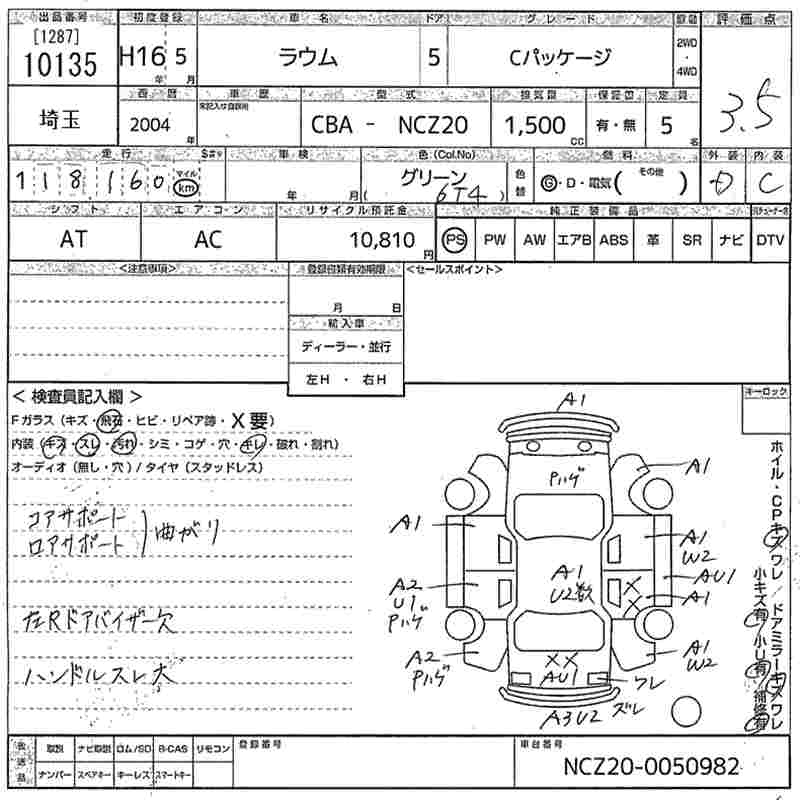 出品番号 初度登録 車名 ドア グレード 駆動 評価点
[1287]
10135 H16 5 ラウム 5 Cパッケージ 2WD・4WD 3.5
年 月
埼玉 西暦 車歴 型式 排気量 保証書 定員
2004 年 未記入は自家用 CBA - NCZ20 1,500 CC 有・無 5 名
走行 車検 色(Col.No) 燃料 外装 内装
118160 マイル km 年 月 グリーン (6T4) 色替 G・D・電気( その他 ) D C
シフト エアコン リサイクル預託金 純正装備品
AT AC 10,810 円 PS PW AW エアB ABS 革 SR ナビ DTV
<注意事項> 登録書類有効期限 <セールスポイント>
月 日
輸入車
ディーラー・並行
左H ・ 右H
< 検査員記入欄 > キーロック
Fガラス (キズ・飛石・ヒビ・リペア跡・X要)
内装 (キズ・スレ・汚れ・シミ・コゲ・穴・キレ・破れ・割れ)
オーディオ (無し・穴) / タイヤ (スタッドレス)
コアサポート
ロアサポート )曲がり
左Rドアバイザー欠
ハンドルスレ大
A1
Pハゲ A1
A1 A1
W2
A1
U2数 AU1
A2
U1
Pハゲ XX A1
A2
Pハゲ A1
W2
XX
AU1 ワレ
A3U2 ズレ
ホイル・CPキズワレ / ドアミラーキズワレ
小キズ有 / 小U有 / 補修有
後送品 取説 ナビ取説 ロム/SD B-CAS リモコン 登録番号 車台番号
ナンバー スペアキー キーレス スマートキー NCZ20-0050982